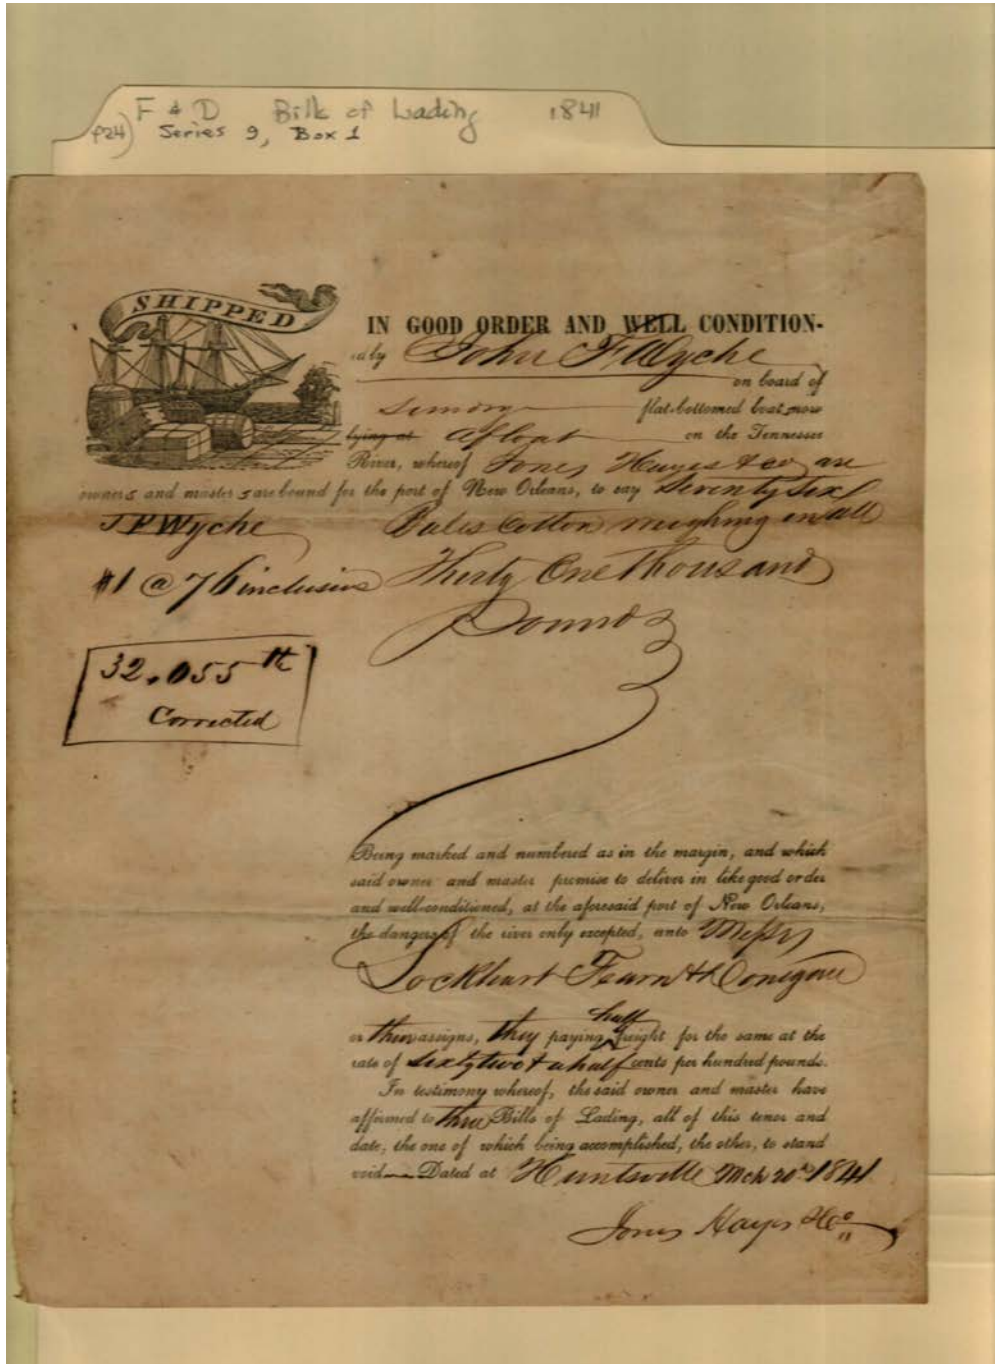 F & D Bills of Lading 1841
P24) Series 9, Box 1
SHIPPED
IN GOOD ORDER AND WELL CONDITION-
ed by John F Wyche
on board of
flat-bottomed boat now
lying at Afloat on the Tennessee
River, whereof Jones Hayes & co are
owners and masters are bound for the port of New Orleans, to say Seventy Six
J F Wyche Bales Cotton weighing in all
#1 @ 76 inclusive Thirty One Thousand
Pounds
32.055 lb
Corrected
Being marked and numbered as in the margin, and which
said owner and master promise to deliver in like good order
and well-conditioned, at the aforesaid port of New Orleans,
the dangers of the river only excepted, unto Messrs
Lockhart Fearn & Donegan
half
or their assigns, they paying freight for the same at the
rate of sixty two & a half cents per hundred pounds.
In testimony whereof, the said owner and master have
affirmed to three Bills of Lading, all of this tenor and
date, the one of which being accomplished, the other, to stand
void Dated at Huntsville Mch 20th 1841
Jones Hayes & Co